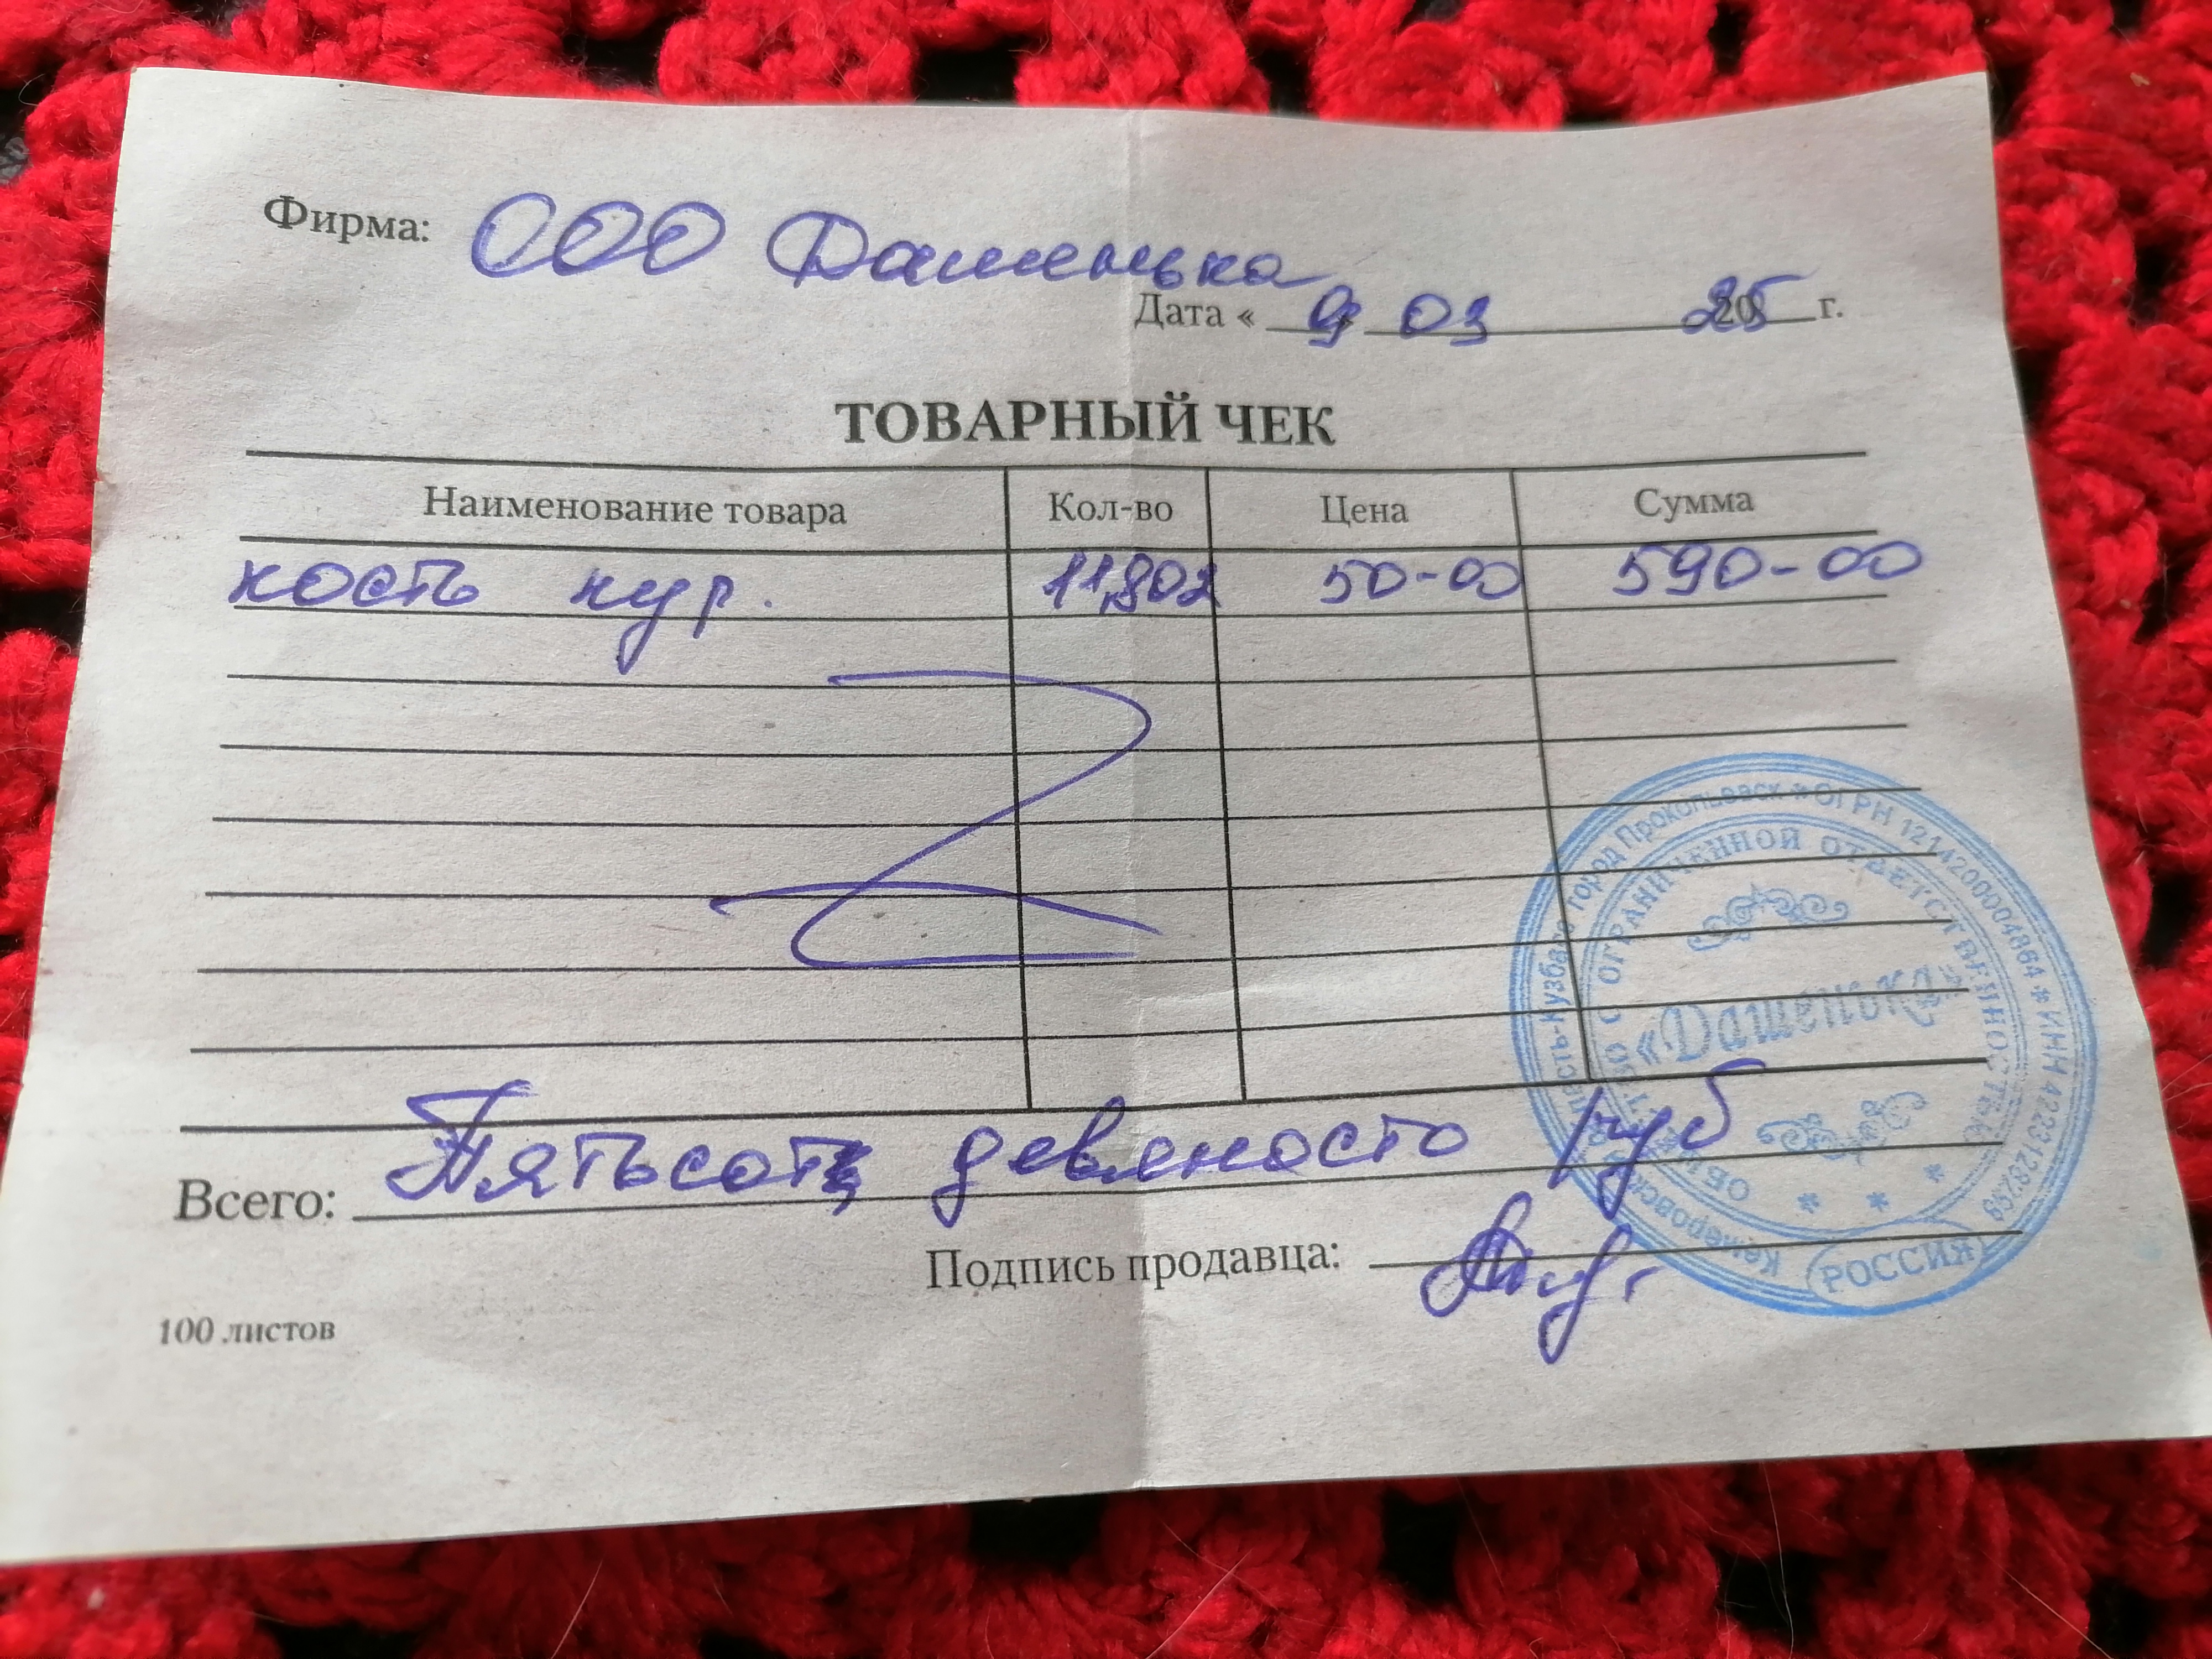 Фирма: ООО Дашенька
Дата « 9 03 25 г.
ТОВАРНЫЙ ЧЕК
Наименование товара Кол-во Цена Сумма
кость кур. 11,802 50-00 590-00
Всего: Пятьсот девяносто руб
Подпись продавца:
100 листов
город Прокопьевск * ОГРН 1214200004864 * ИНН
ОГРАНИЧЕННОЙ ОТВЕТСТВЕННОСТЬЮ
«Дашенька»
РОССИЯ